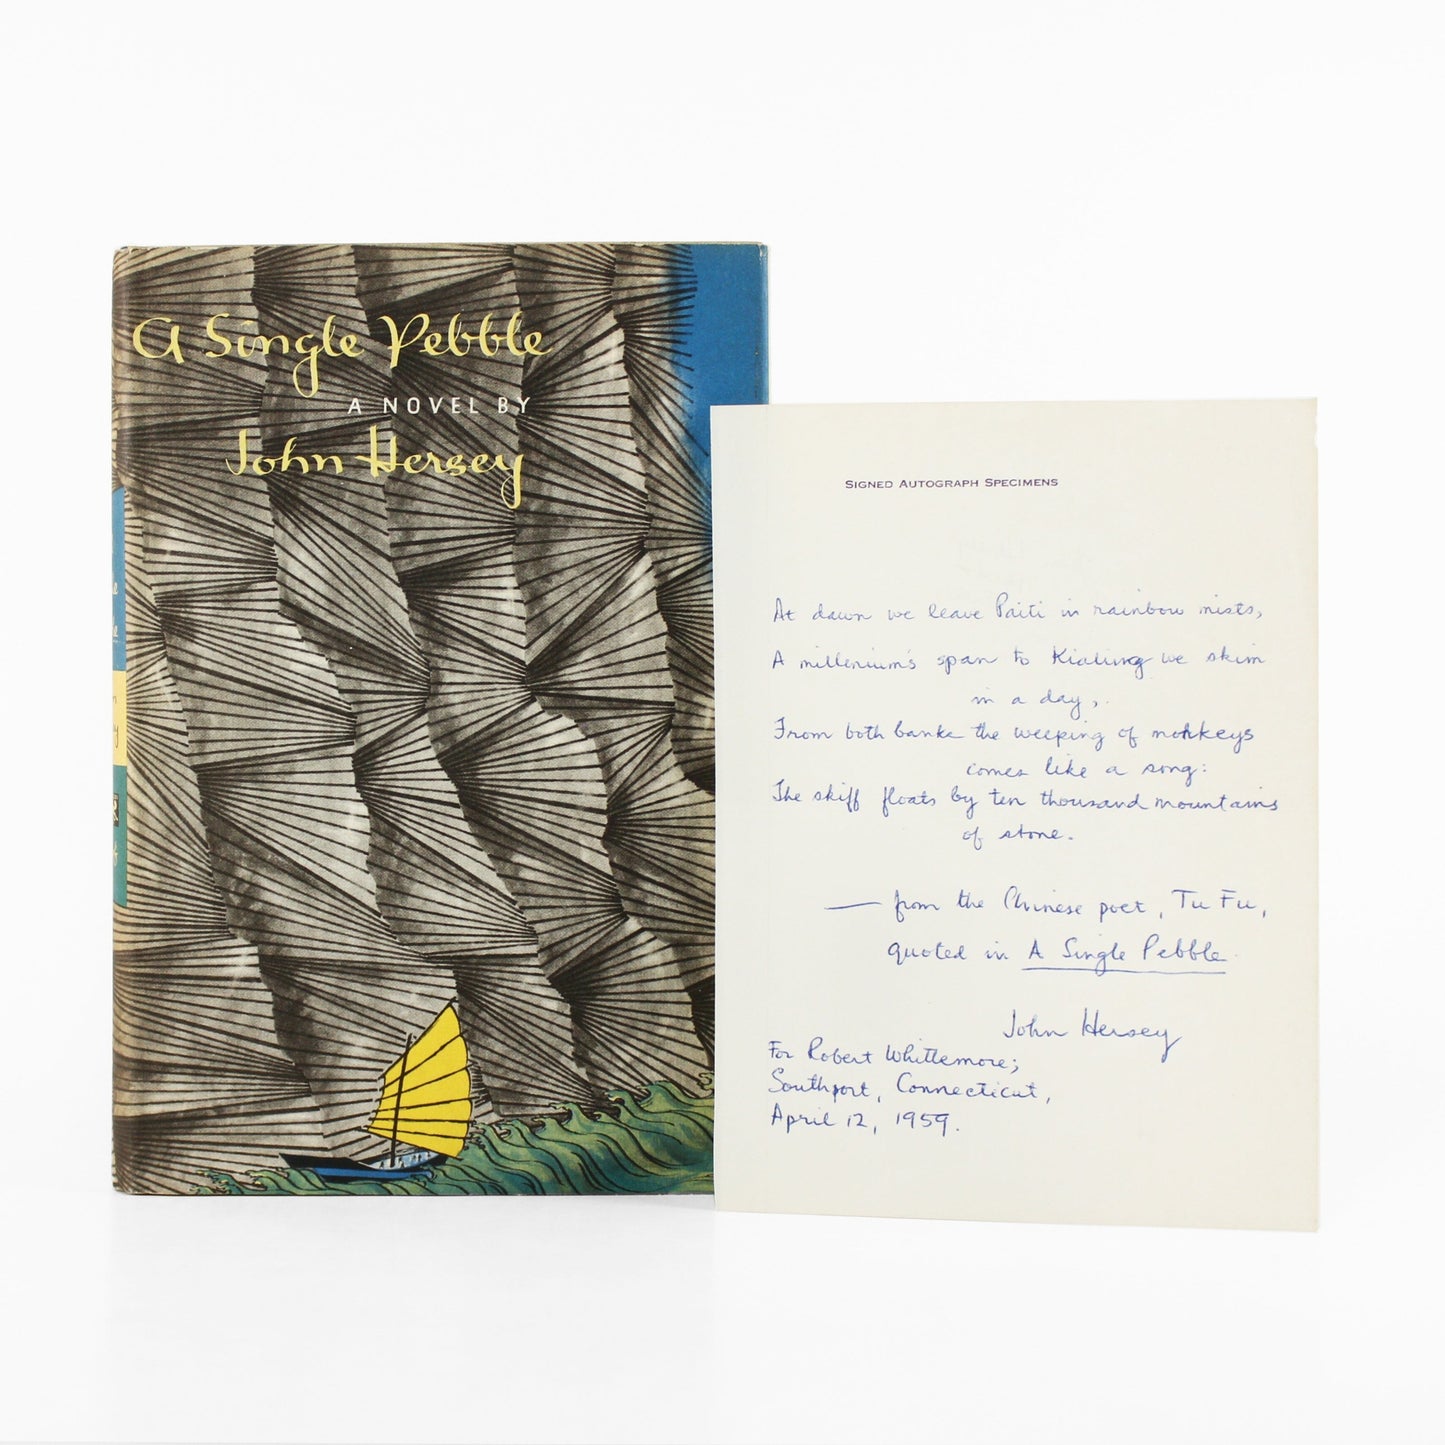 A Single Pebble
A NOVEL BY
John Hersey
SIGNED AUTOGRAPH SPECIMENS
At dawn we leave Paiti in rainbow mists,
A millenium's span to Kialing we skim
in a day,
From both banks the weeping of monkeys
comes like a song:
The skiff floats by ten thousand mountains
of stone.
— from the Chinese poet, Tu Fu,
quoted in A Single Pebble.
John Hersey
For Robert Whittemore;
Southport, Connecticut,
April 12, 1959.